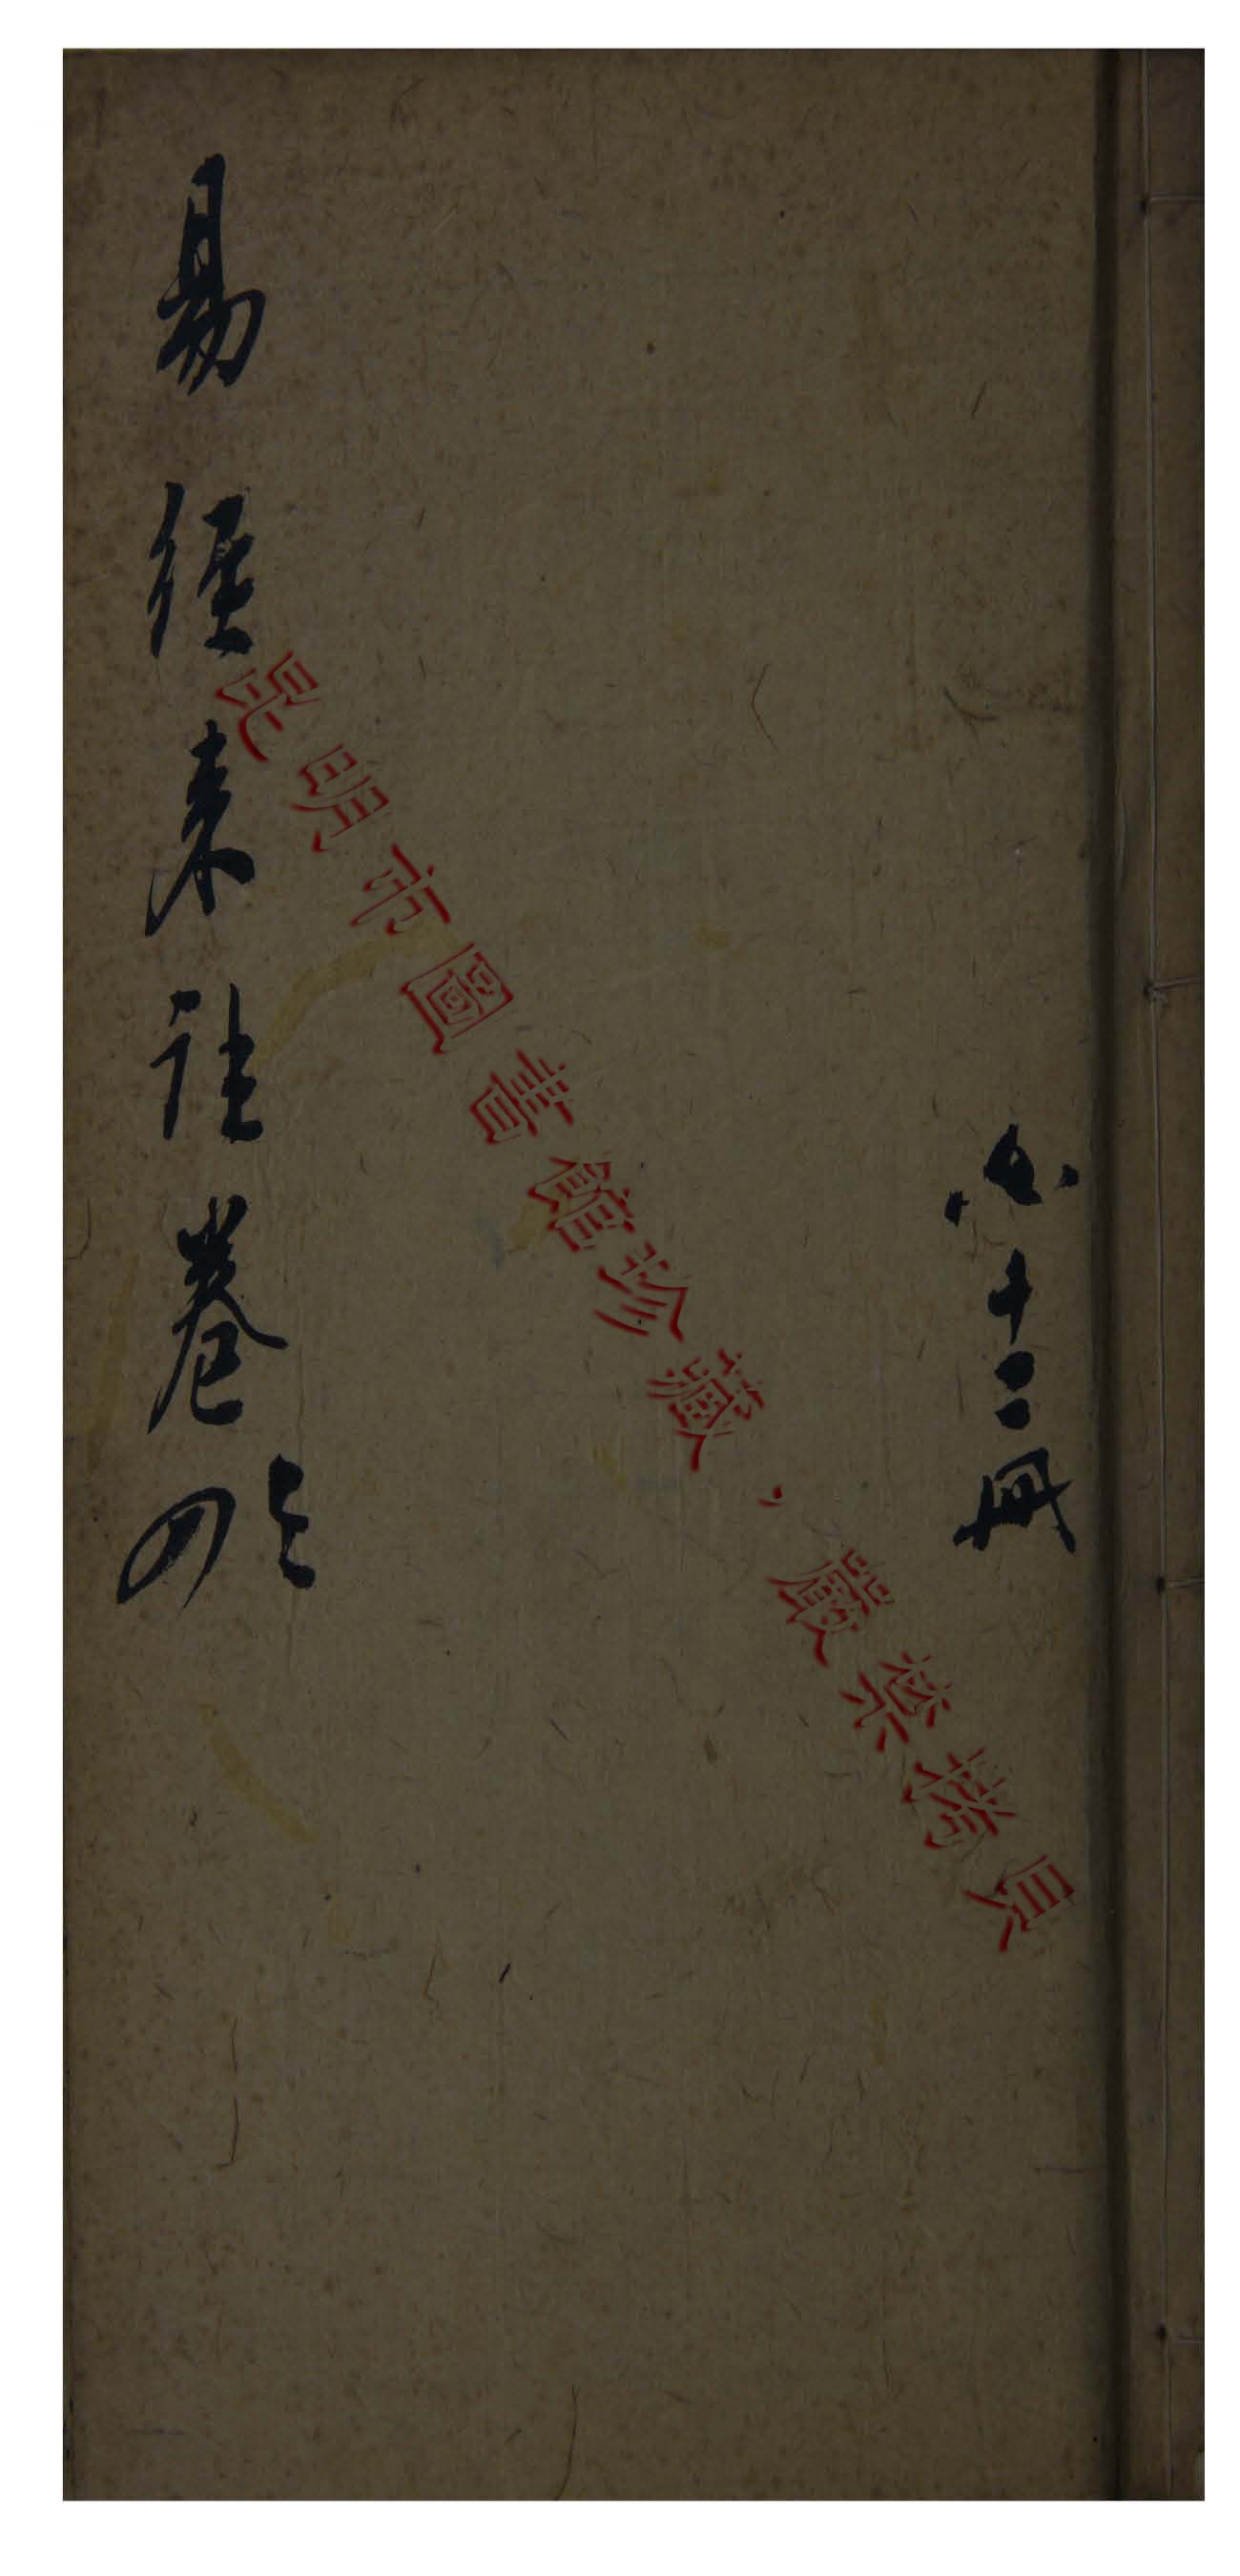 共十二冊
易經來註卷四之
昆明市圖書館珍藏，嚴禁拷貝